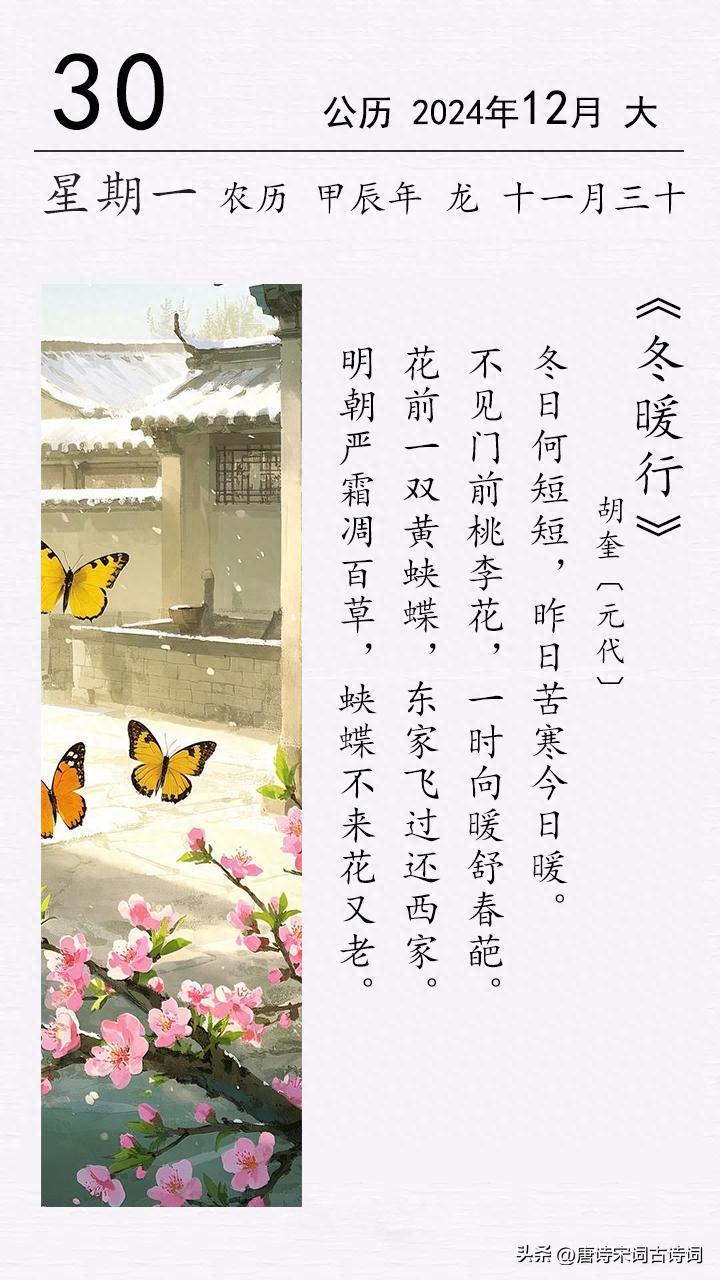 30
公历 2024年12月 大
星期一 农历 甲辰年 龙 十一月三十
《冬暖行》
胡奎〔元代〕
冬日何短短，昨日苦寒今日暖。
不见门前桃李花，一时向暖舒春葩。
花前一双黄蛱蝶，东家飞过还西家。
明朝严霜凋百草，蛱蝶不来花又老。
头条 @唐诗宋词古诗词